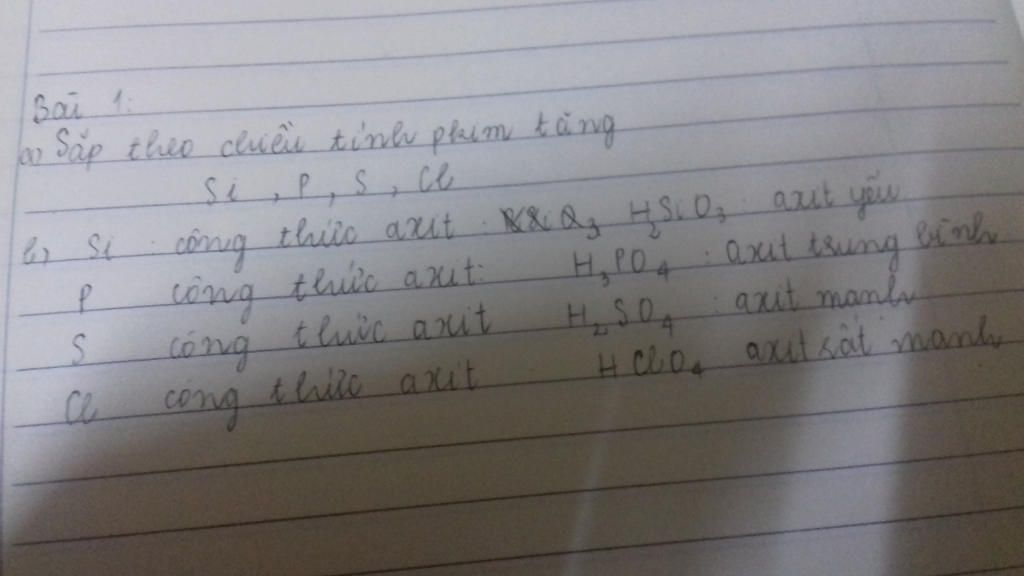 Bài 1:
a) Sắp theo chiều tính phim tăng
Si, P, S, Cl
b, Si : công thức axit : H₂SiO₃ : axit yếu
P công thức axit: H₃PO₄ : axit trung bình
S công thức axit H₂SO₄ : axit mạnh
Cl công thức axit HClO₄ axit rất mạnh